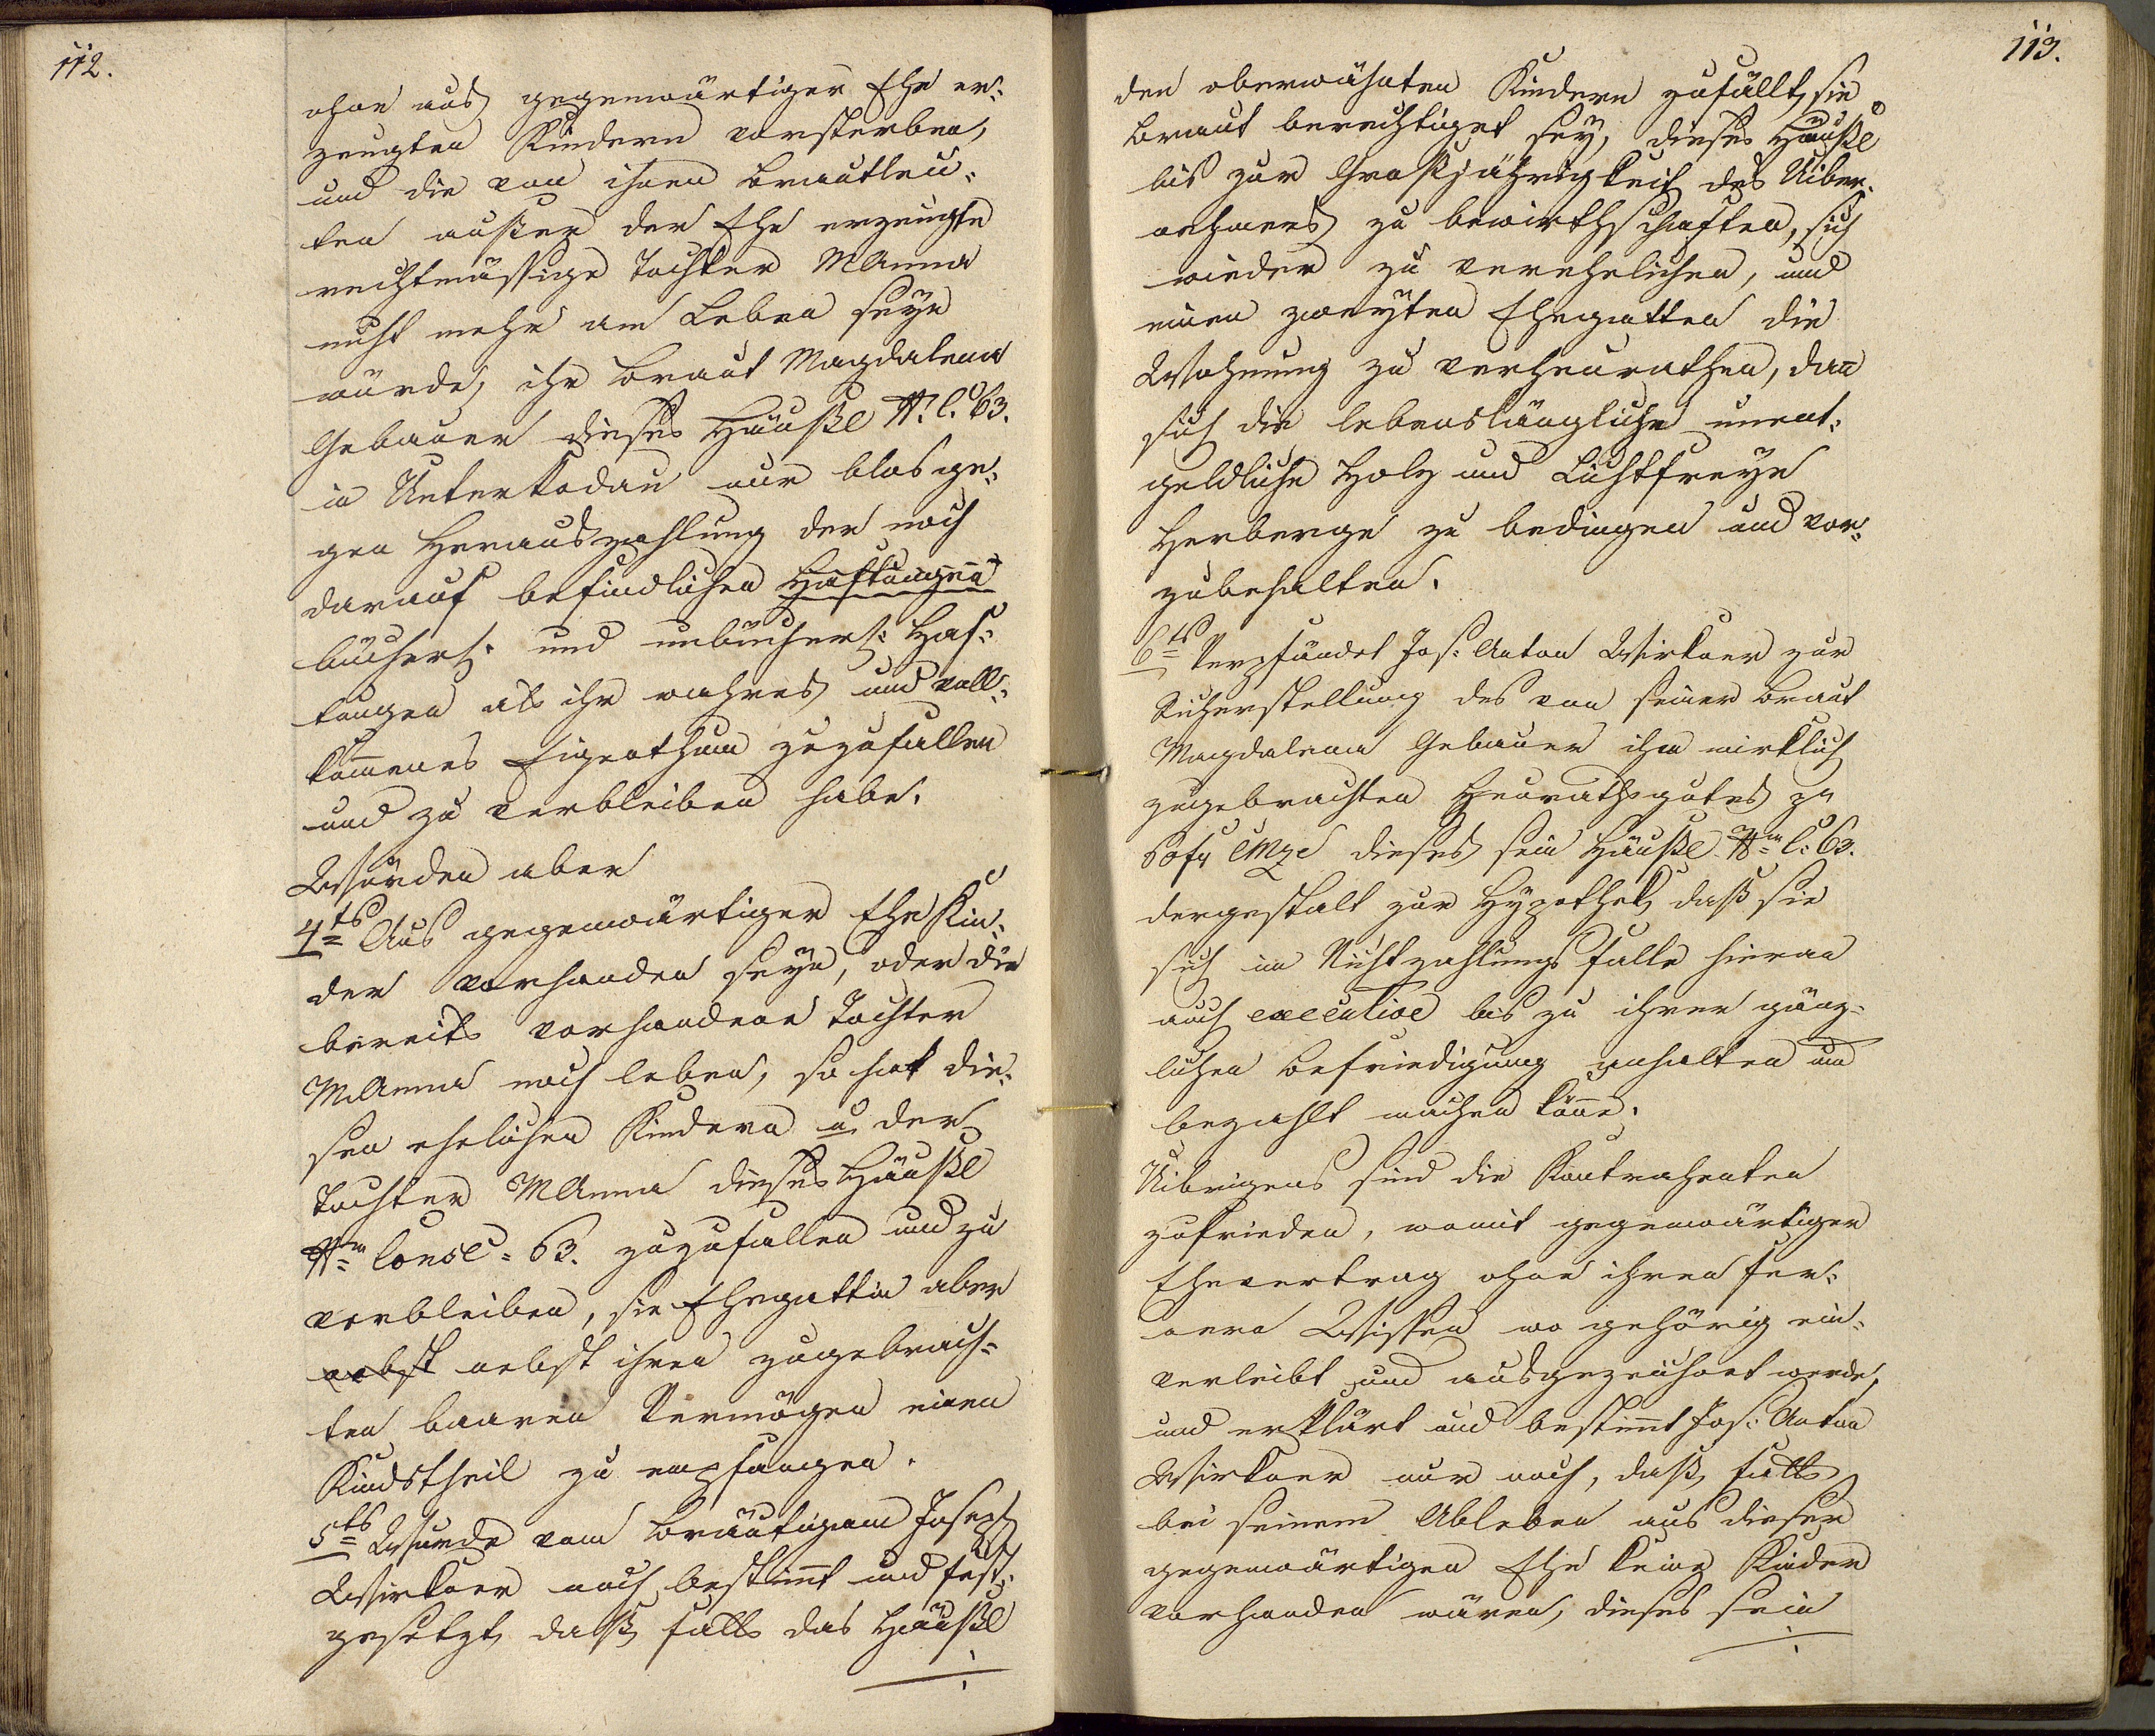 112.
ohne aus gegenwärtiger Ehe er-
zeugten Kindern versterben,
und die von ihnen Brautleu-
ten außer der Ehe erzeugte
rechtmässige Tochter MAnna
nicht mehr am Leben seyn
würde, ihr Braut Magdalena
Gebauer dieses Häußl N. C. 63.
in Unterkodau nur blos ge-
gen Herauszahlung der noch
darauf befindlichen Haftungen
bücherl. und unbücherl: Haf-
tungen als ihr wahres und voll-
kommenes Eigenthum zuzufallen
und zu verbleiben habe.
Würden aber
4ts Aus gegenwärtiger Ehe Kin-
der vorhanden seyn, oder die
bereits vorhandene Tochter
MAnna noch leben, so hat die-
sen ehelichen Kindern u. der
Tochter MAnna dieses Häußl
Nro Consc. 63. zuzufallen und zu
verbleiben, die Ehegattin aber
nebst nebst ihren zugebrach-
ten baaren Vermögen einen
Kindstheil zu empfangen.
5ts Wurde vom Bräutigam Joseph
Wirkner noch bestimt und fest-
gesetzt, daß, falls das Häußl
113.
den oberwähnten Kindern zufällt, sie
Braut berechtiget sey, dieses Häußl
bis zur Großjährigkeit des Uiber-
nehmers zu bewirthschaften, sich
wieder zu verehelichen, und
einen zweyten Ehegatten die
Wohnung zu verheurathen, dan
sich die lebenslängliche unent-
geldliche Holz und Lichtfreye
Herberge zu bedingen und vor-
zubehalten.
6ts Verpfändet Jos: Anton Wirkner zur
Sicherstellung des von seiner Braut
Magdalena Gebauer ihm wirklich
zugebrachten Heurathsgutes pr
60 fr CMze dieses sein Häußl Nro C: 63.
dergestalt zur Hypothek, daß sie
sich im Nichtzahlungsfalle hieran
auch executive bis zu ihrer gänz-
lichen Befriedigung anhalten und
bezahlt machen könne.
Uibrigens sind die Kontrahenten
zufrieden, womit gegenwärtiger
Ehevertrag ohne ihren fer-
nern Wissen wo gehörig ein-
verleibt und ausgezeichnet werde,
und erklärt und bestimt Jos: Anton
Wirkner nur noch, daß, falls
bei seinem Ableben aus dieser
gegenwärtigen Ehe keine Kinder
vorhanden wären, dieses sein